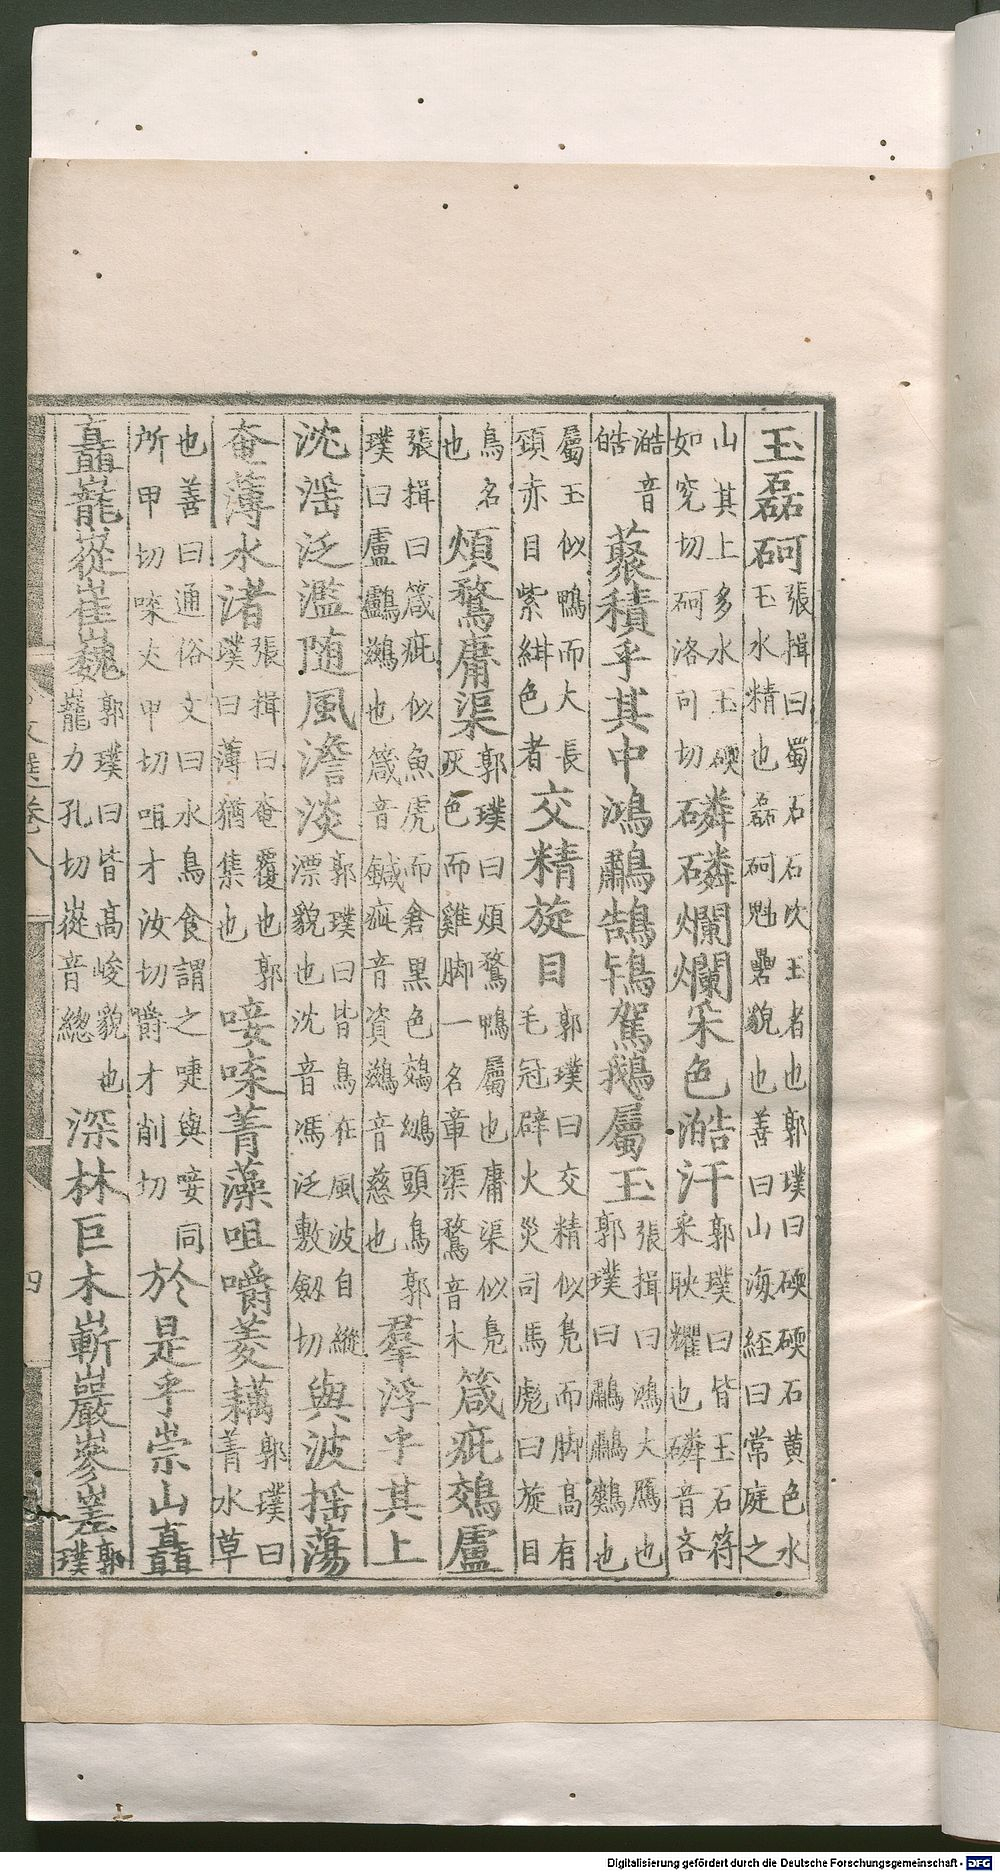 玉磊砢張揖曰蜀石石次玉者也郭璞曰碝碝石黄色水玉水精也磊砢魁礨貌也善曰山海經曰常庭之
山其上多水玉碝如兖切砢洛可切磷磷爛爛采色澔汗郭璞曰皆玉石符采映耀也磷音吝
澔音皓藂積乎其中鴻鷫鵠鴇駕鵝屬玉張揖曰鴻大鴈也郭璞曰鷫鷫鸘也
屬玉似鴨而大長頸赤目紫紺色者交精旋目郭璞曰交精似鳧而脚高有毛冠辟火災司馬彪曰旋目
鳥名也煩鶩庸渠郭璞曰煩鶩鴨屬也庸渠似鳧灰色而雞脚一名章渠鶩音木箴疵鵁盧
張揖曰箴疵似魚虎而倉黑色鵁鵁頭鳥郭璞曰盧鸕鷀也箴音鍼疵音資鷀音慈也羣浮乎其上
沈淫泛濫隨風澹淡郭璞曰皆鳥在風波自縱漂貌也沈音馮泛敷劒切與波揺蕩
奄薄水渚張揖曰奄覆也郭璞曰薄猶集也唼喋菁藻咀嚼菱藕郭璞曰菁水草
也善曰通俗文曰水鳥食謂之啑與唼同所甲切喋丈甲切咀才汝切嚼才削切於是乎崇山矗
矗巃嵸崔巍郭璞曰皆高峻貌也巃力孔切嵸音緫深林巨木嶄巖㠁嵳郭璞
文選卷八
四
Digitalisierung gefördert durch die Deutsche Forschungsgemeinschaft - DFG